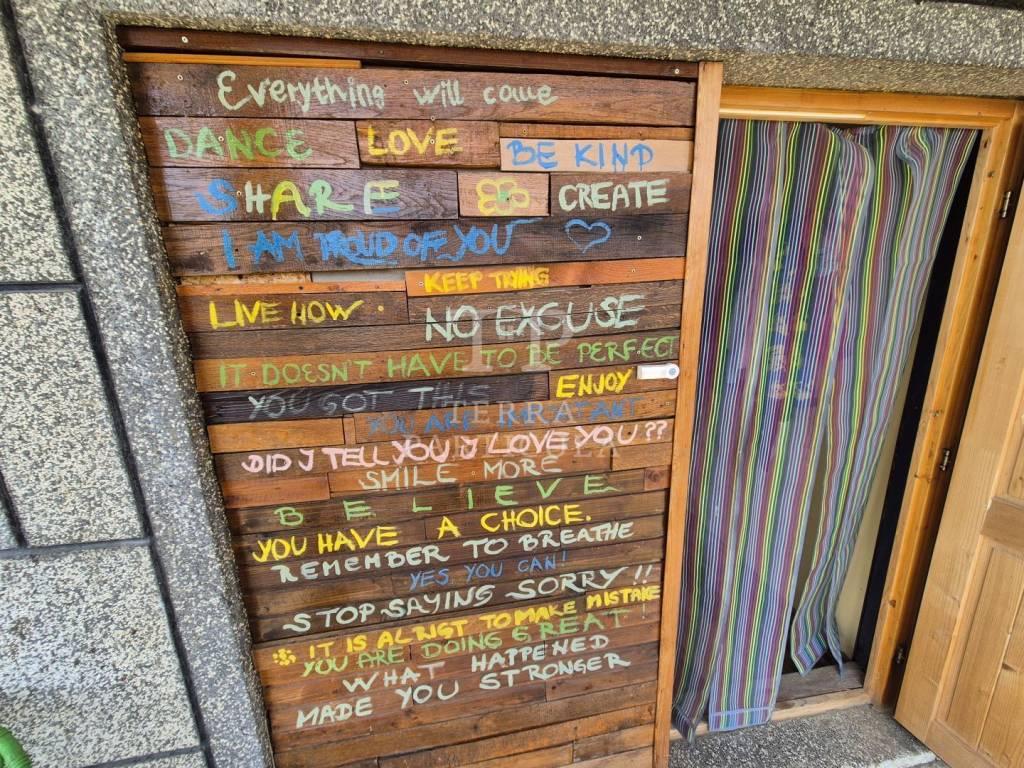 Everything will come
DANCE LOVE BE KIND
SHARE CREATE
I AM PROUD OF YOU
KEEP TRYING
LIVE HOW
NO EXCUSE
IT DOESNT HAVE TO BE PERFECT
YOU GOT THIS ENJOY
YOU ARE IMPORTANT
DID I TELL YOU I LOVE YOU??
SMILE MORE
BELIEVE
YOU HAVE A CHOICE.
REMEMBER TO BREATHE
YES YOU CAN!
STOP SAYING SORRY!!
IT IS ALRIGT TO MAKE MISTAKE
YOU ARE DOING GREAT!
WHAT HAPPENED
MADE YOU STRONGER